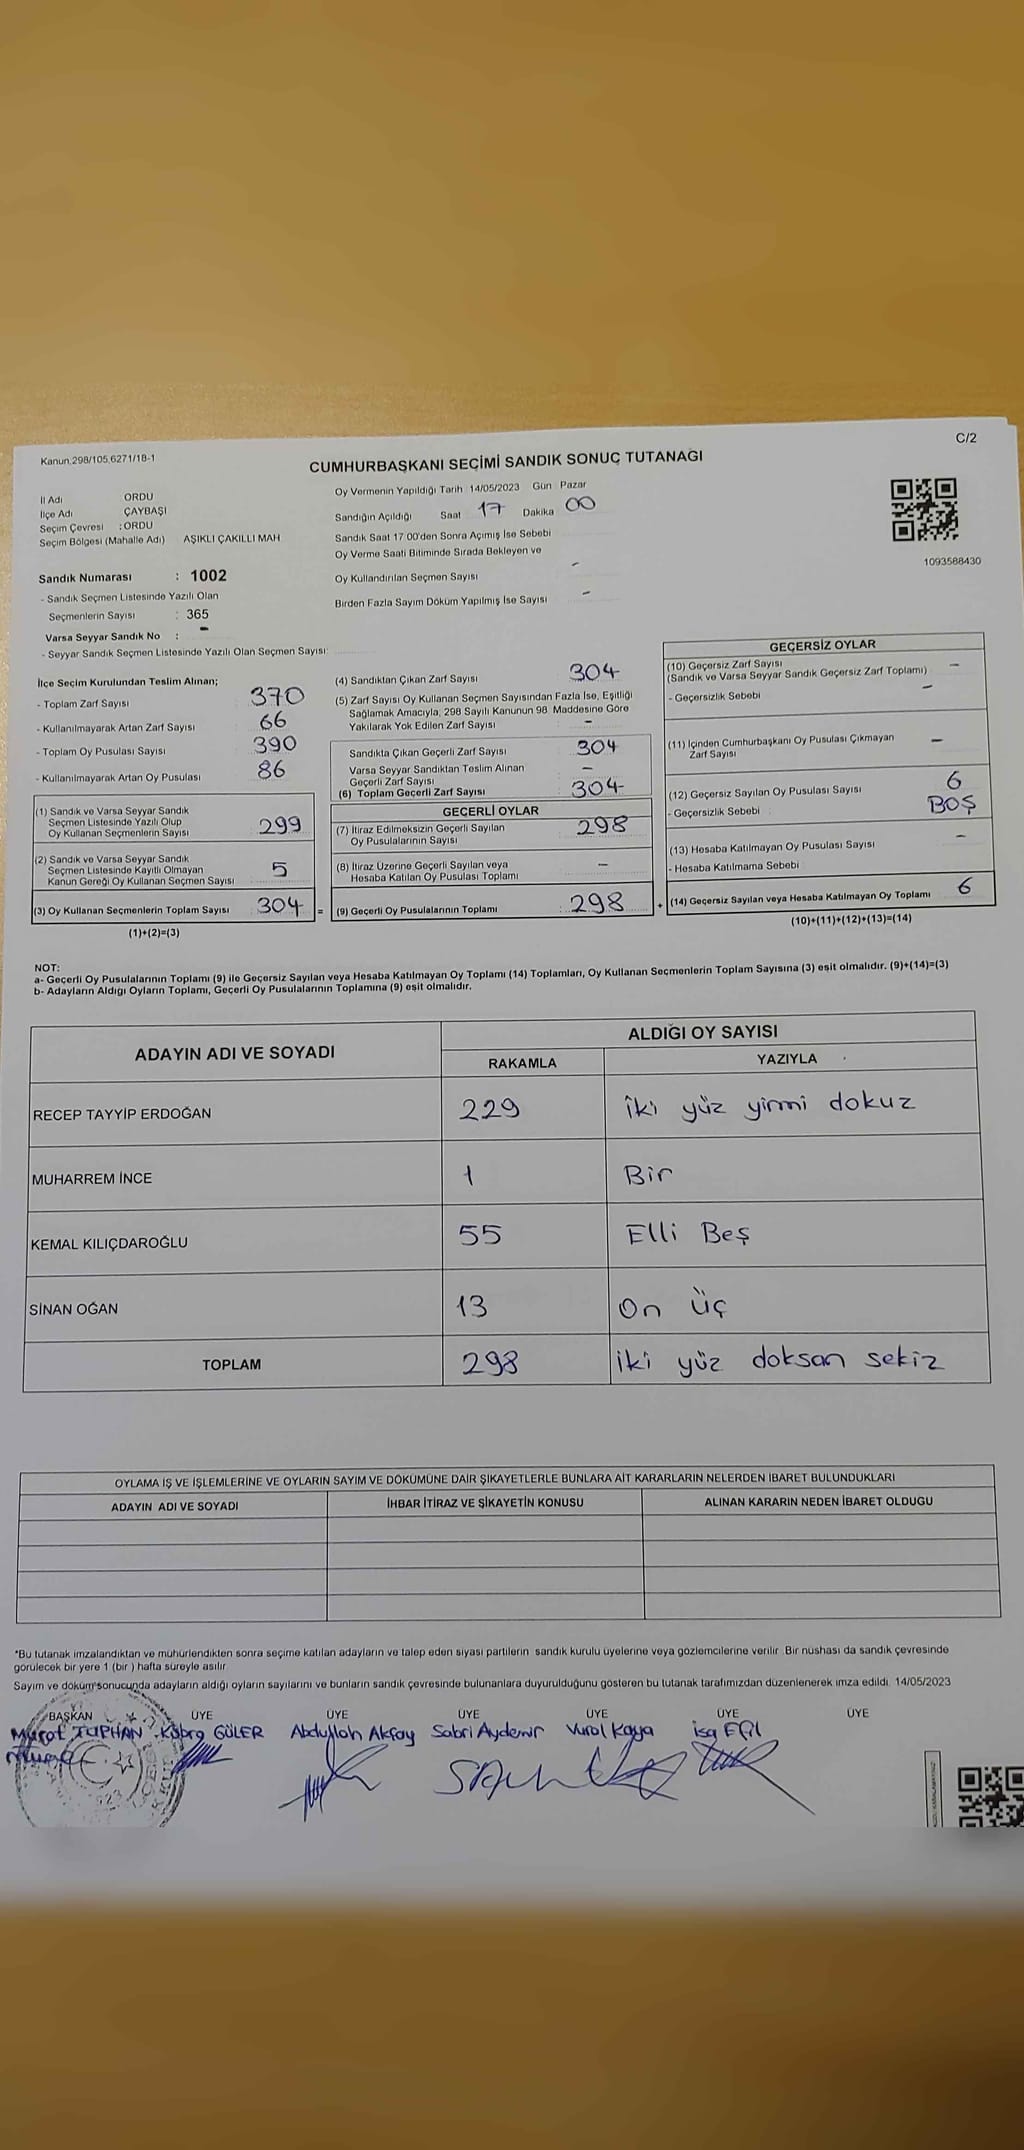 Kanun.298/105.6271/18-1
C/2
CUMHURBAŞKANI SEÇİMİ SANDIK SONUÇ TUTANAGI
İl Adı ORDU
İlçe Adı ÇAYBAŞI
Seçim Çevresi : ORDU
Seçim Bölgesi (Mahalle Adı) AŞIKLI ÇAKILLI MAH
Oy Vermenin Yapıldığı Tarih 14/05/2023 Gün Pazar
Sandığın Açıldığı Saat 17 Dakika 00
Sandık Saat 17 00'den Sonra Açımış İse Sebebi
Oy Verme Saati Bitiminde Sırada Bekleyen ve
Oy Kullandırılan Seçmen Sayısı -
Birden Fazla Sayım Döküm Yapılmış İse Sayısı -
1093588430
Sandık Numarası : 1002
- Sandık Seçmen Listesinde Yazılı Olan
Seçmenlerin Sayısı : 365
Varsa Seyyar Sandık No : -
- Seyyar Sandık Seçmen Listesinde Yazılı Olan Seçmen Sayısı:
İlçe Seçim Kurulundan Teslim Alınan;
- Toplam Zarf Sayısı 370
- Kullanılmayarak Artan Zarf Sayısı 66
- Toplam Oy Pusulası Sayısı 390
- Kullanılmayarak Artan Oy Pusulası 86
(1) Sandık ve Varsa Seyyar Sandık
Seçmen Listesinde Yazılı Olup
Oy Kullanan Seçmenlerin Sayısı 299
(2) Sandık ve Varsa Seyyar Sandık
Seçmen Listesinde Kayıtlı Olmayan
Kanun Gereği Oy Kullanan Seçmen Sayısı 5
(3) Oy Kullanan Seçmenlerin Toplam Sayısı 304 =
(1)+(2)=(3)
(4) Sandıktan Çıkan Zarf Sayısı 304
(5) Zarf Sayısı Oy Kullanan Seçmen Sayısından Fazla İse, Eşitliği
Sağlamak Amacıyla, 298 Sayılı Kanunun 98. Maddesine Göre
Yakılarak Yok Edilen Zarf Sayısı -
Sandıkta Çıkan Geçerli Zarf Sayısı 304
Varsa Seyyar Sandıktan Teslim Alınan
Geçerli Zarf Sayısı -
(6) Toplam Geçerli Zarf Sayısı 304
GEÇERLİ OYLAR
(7) İtiraz Edilmeksizin Geçerli Sayılan
Oy Pusulalarının Sayısı 298
(8) İtiraz Üzerine Geçerli Sayılan veya
Hesaba Katılan Oy Pusulası Toplamı -
(9) Geçerli Oy Pusulalarının Toplamı : 298 +
GEÇERSİZ OYLAR
(10) Geçersiz Zarf Sayısı -
(Sandık ve Varsa Seyyar Sandık Geçersiz Zarf Toplamı)
- Geçersizlik Sebebi -
(11) İçinden Cumhurbaşkanı Oy Pusulası Çıkmayan
Zarf Sayısı -
(12) Geçersiz Sayılan Oy Pusulası Sayısı 6
- Geçersizlik Sebebi BOŞ
(13) Hesaba Katılmayan Oy Pusulası Sayısı -
- Hesaba Katılmama Sebebi
(14) Geçersiz Sayılan veya Hesaba Katılmayan Oy Toplamı 6
(10)+(11)+(12)+(13)=(14)
NOT:
a- Geçerli Oy Pusulalarının Toplamı (9) ile Geçersiz Sayılan veya Hesaba Katılmayan Oy Toplamı (14) Toplamları, Oy Kullanan Seçmenlerin Toplam Sayısına (3) eşit olmalıdır. (9)+(14)=(3)
b- Adayların Aldığı Oyların Toplamı, Geçerli Oy Pusulalarının Toplamına (9) eşit olmalıdır.
ADAYIN ADI VE SOYADI
ALDIĞI OY SAYISI
RAKAMLA YAZIYLA
RECEP TAYYİP ERDOĞAN 229 iki yüz yirmi dokuz
MUHARREM İNCE 1 Bir
KEMAL KILIÇDAROĞLU 55 Elli Beş
SİNAN OĞAN 13 On üç
TOPLAM 298 iki yüz doksan sekiz
OYLAMA İŞ VE İŞLEMLERİNE VE OYLARIN SAYIM VE DÖKÜMÜNE DAİR ŞİKAYETLERLE BUNLARA AİT KARARLARIN NELERDEN İBARET BULUNDUKLARI
ADAYIN ADI VE SOYADI İHBAR İTİRAZ VE ŞİKAYETİN KONUSU ALINAN KARARIN NEDEN İBARET OLDUGU
*Bu tutanak imzalandıktan ve mühürlendikten sonra seçime katılan adayların ve talep eden siyasi partilerin sandık kurulu üyelerine veya gözlemcilerine verilir. Bir nüshası da sandık çevresinde
görülecek bir yere 1 (bir ) hafta süreyle asılır
Sayım ve döküm sonucunda adayların aldığı oyların sayılarını ve bunların sandık çevresinde bulunanlara duyurulduğunu gösteren bu tutanak tarafımızdan düzenlenerek imza edildi. 14/05/2023
BAŞKAN ÜYE ÜYE ÜYE ÜYE ÜYE ÜYE
Murat TUPHAN Kübra GÜLER Abdullah Aksay Sabri Aydemir Vural Kaya isa EĞİL